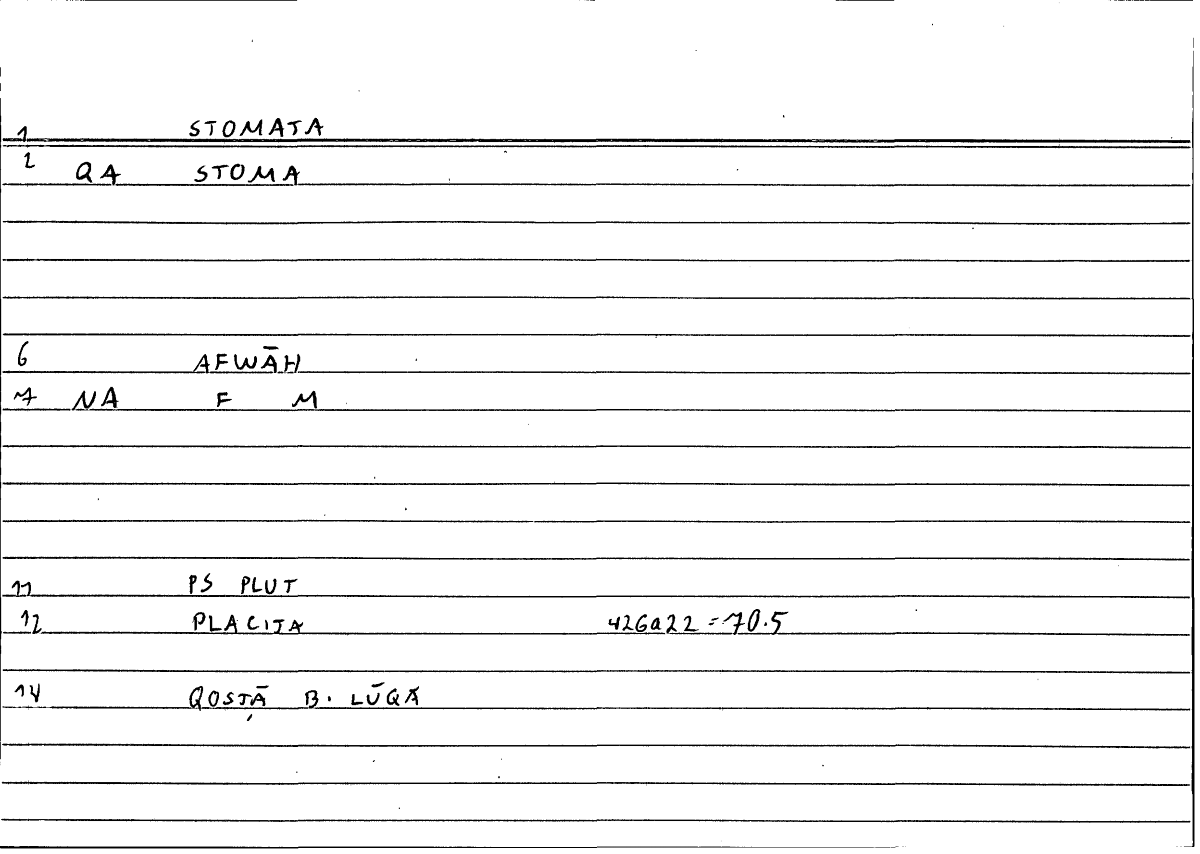 1 STOMATA
2 QA STOMA
6 AFWĀH
7 NA F M
11 PS PLUT
12 PLACITA 426a22=70.5
14 QOSṬĀ B. LŪQĀ